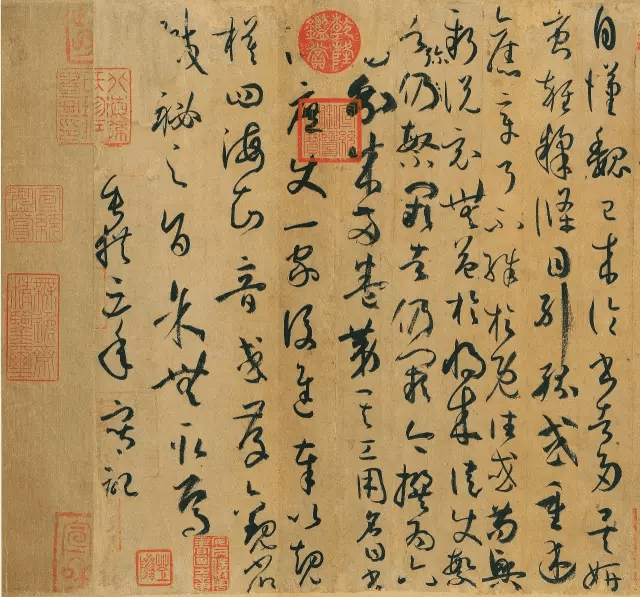 自漢魏已來論書者多矣妍
蚩雜糅條目糾紛或重述
舊章了不殊於既往或苟興
新說竟無益於將來徒使繁
者彌仍繁闕者仍闕今撰為六
篇分成兩卷第其工用名曰書
譜庶使一家後進奉以規
模四海知音或存觀省
緘秘之旨余無取焉
垂拱三年寫記
乾隆鑑賞